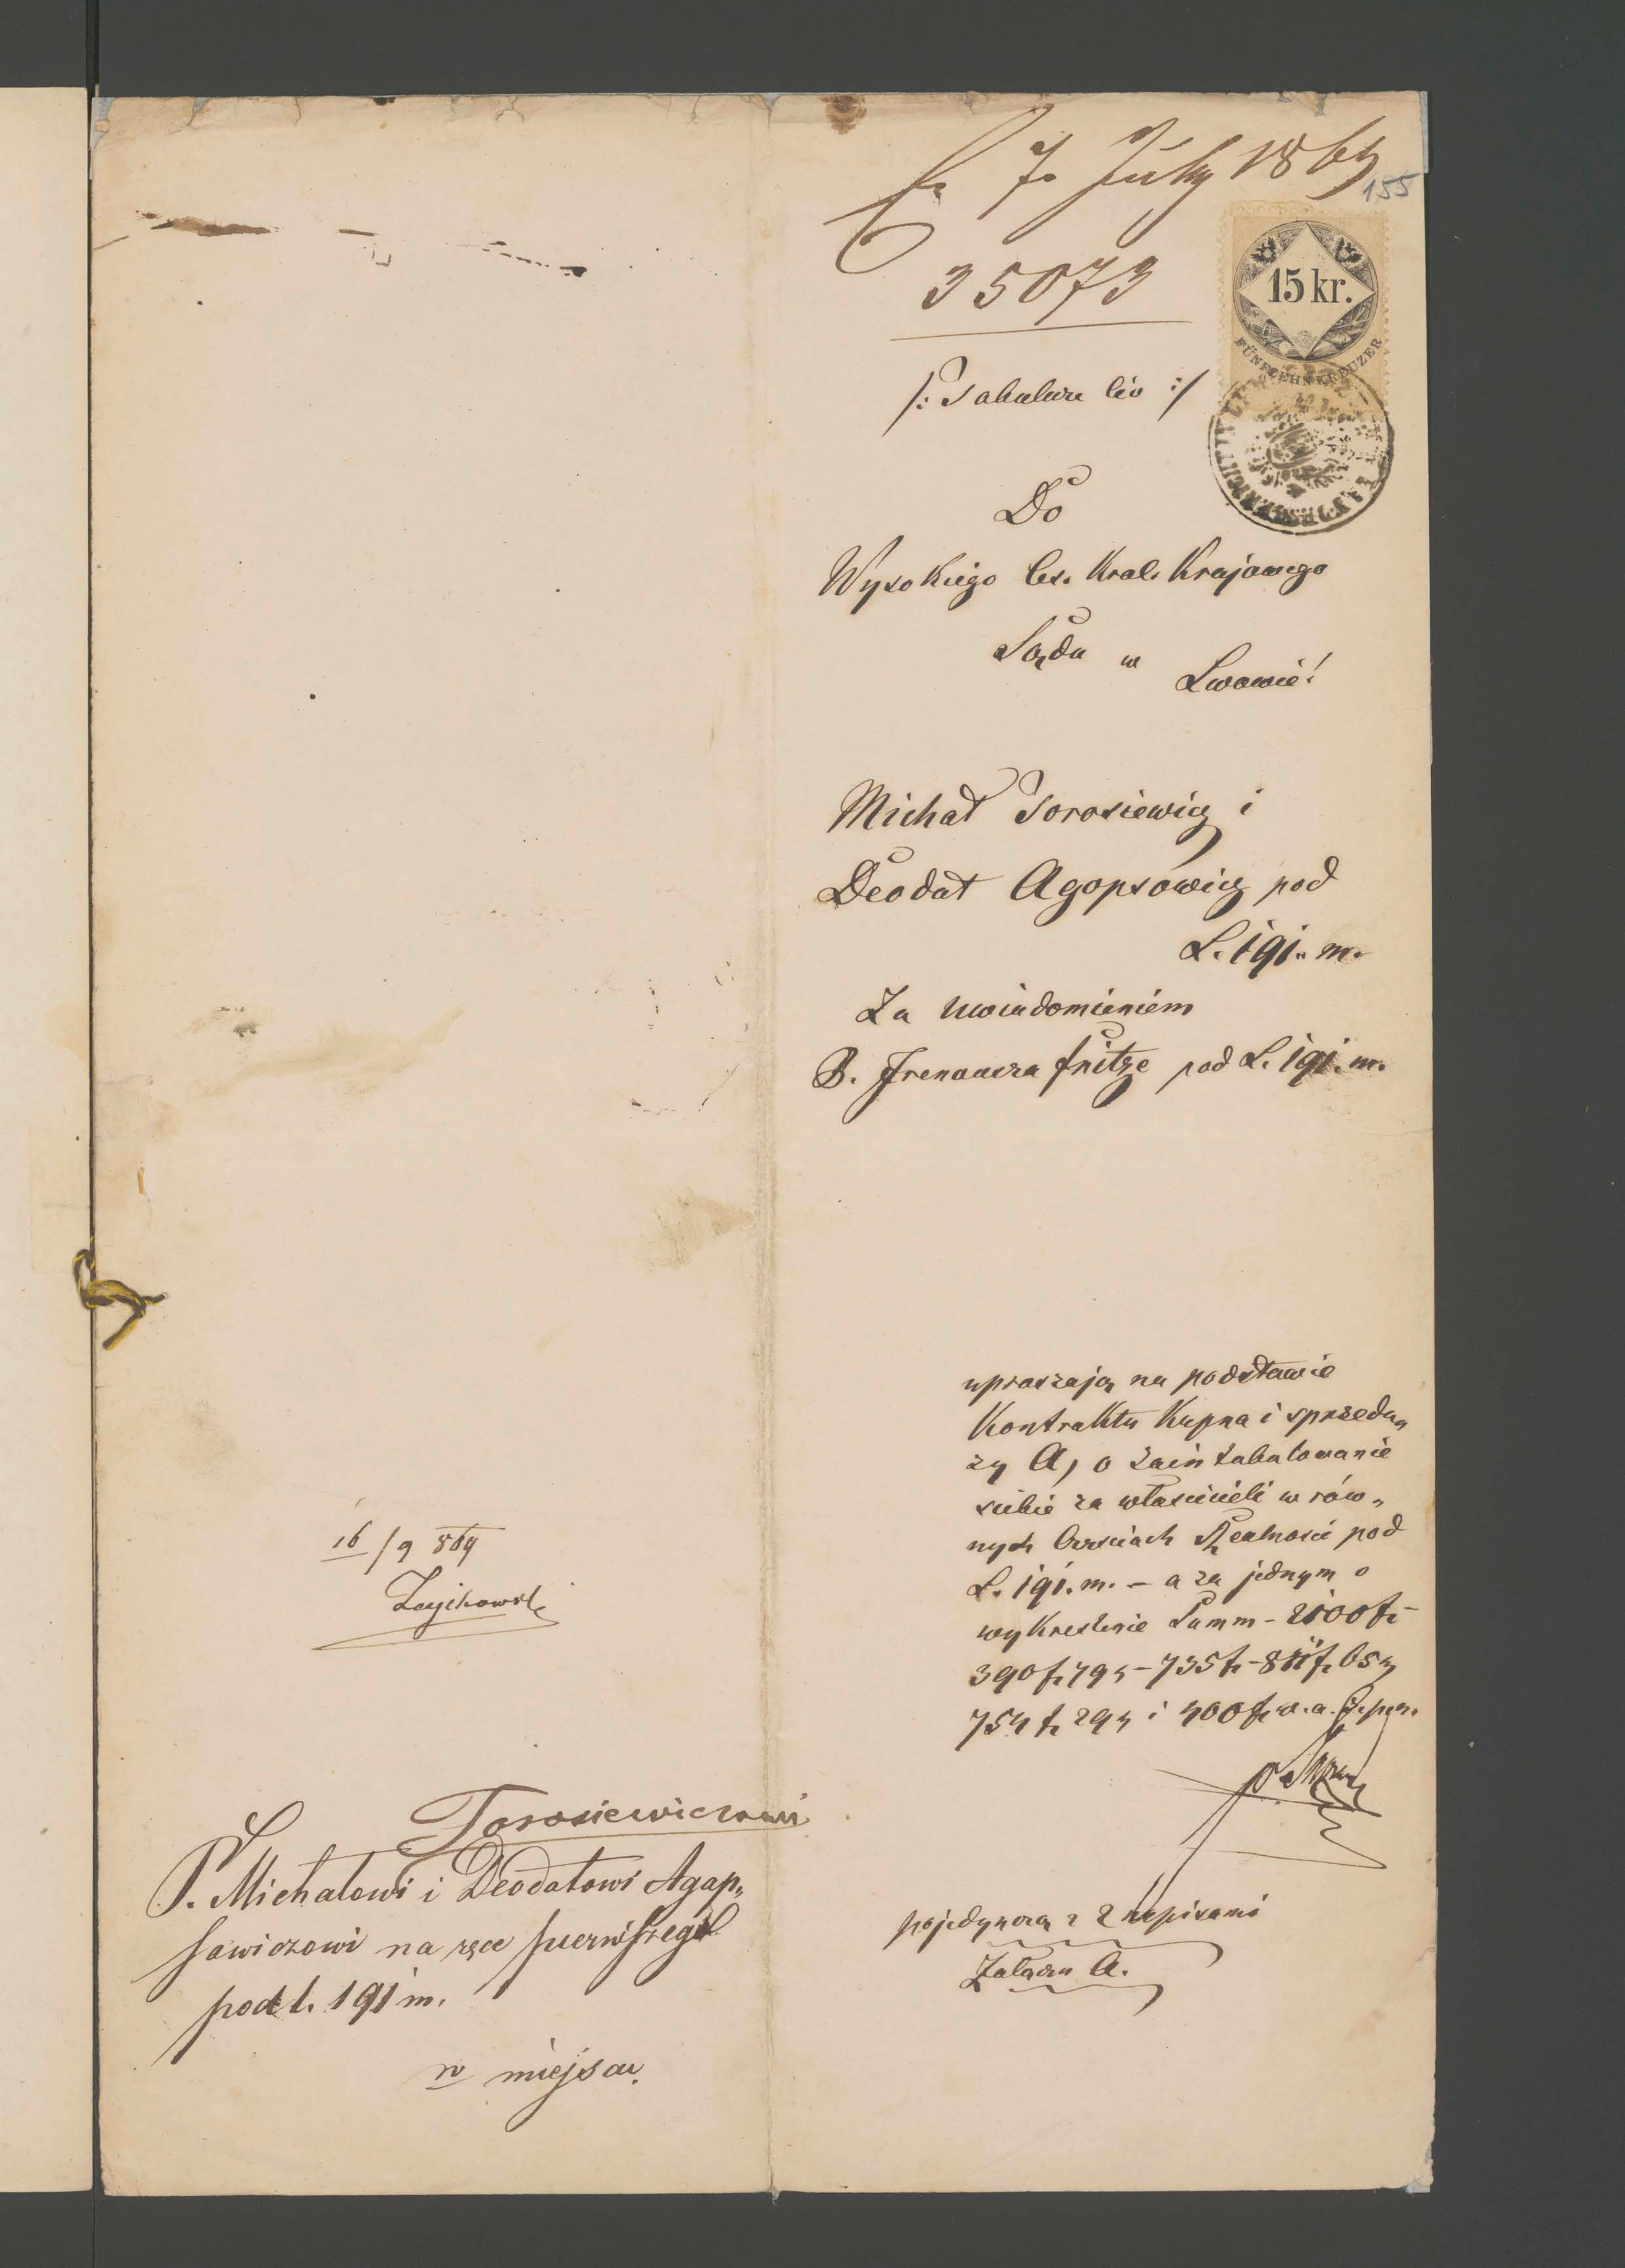 7. July 1869
155
35073
15 kr.
FÜNFZEHN KREUZER
/: Tabulare Cio :/
Do
Wysokiego Ces. Król. Krajowego
Sądu w
Lwowie!
Michał Torosiewicz i
Deodat Agopsowicz pod
L. 191. m.
Za uwiadomieniem
Fritze pod L. 191. m.
upraszają na podstawie
Kontraktu Kupna i sprzeda„
ży A, o zaintabulowanie
siebie za właścicieli w rów„
nych Częściach Realności pod
L. 191. m. – a za jednym o
wykreślenie Summ – 2100 fr
390 fr 79 x – 735 fr – 811 fr 65 x
754 fr 29 x i 400 fr w. a.
pojedynczą z 2 napisami
Załączn A.
16/9 869
Torosiewiczowi
P. Michałowi i Deodatowi Agap„
sowiczowi na ręce pierwszego
pod l. 191 m.
w miejscu.